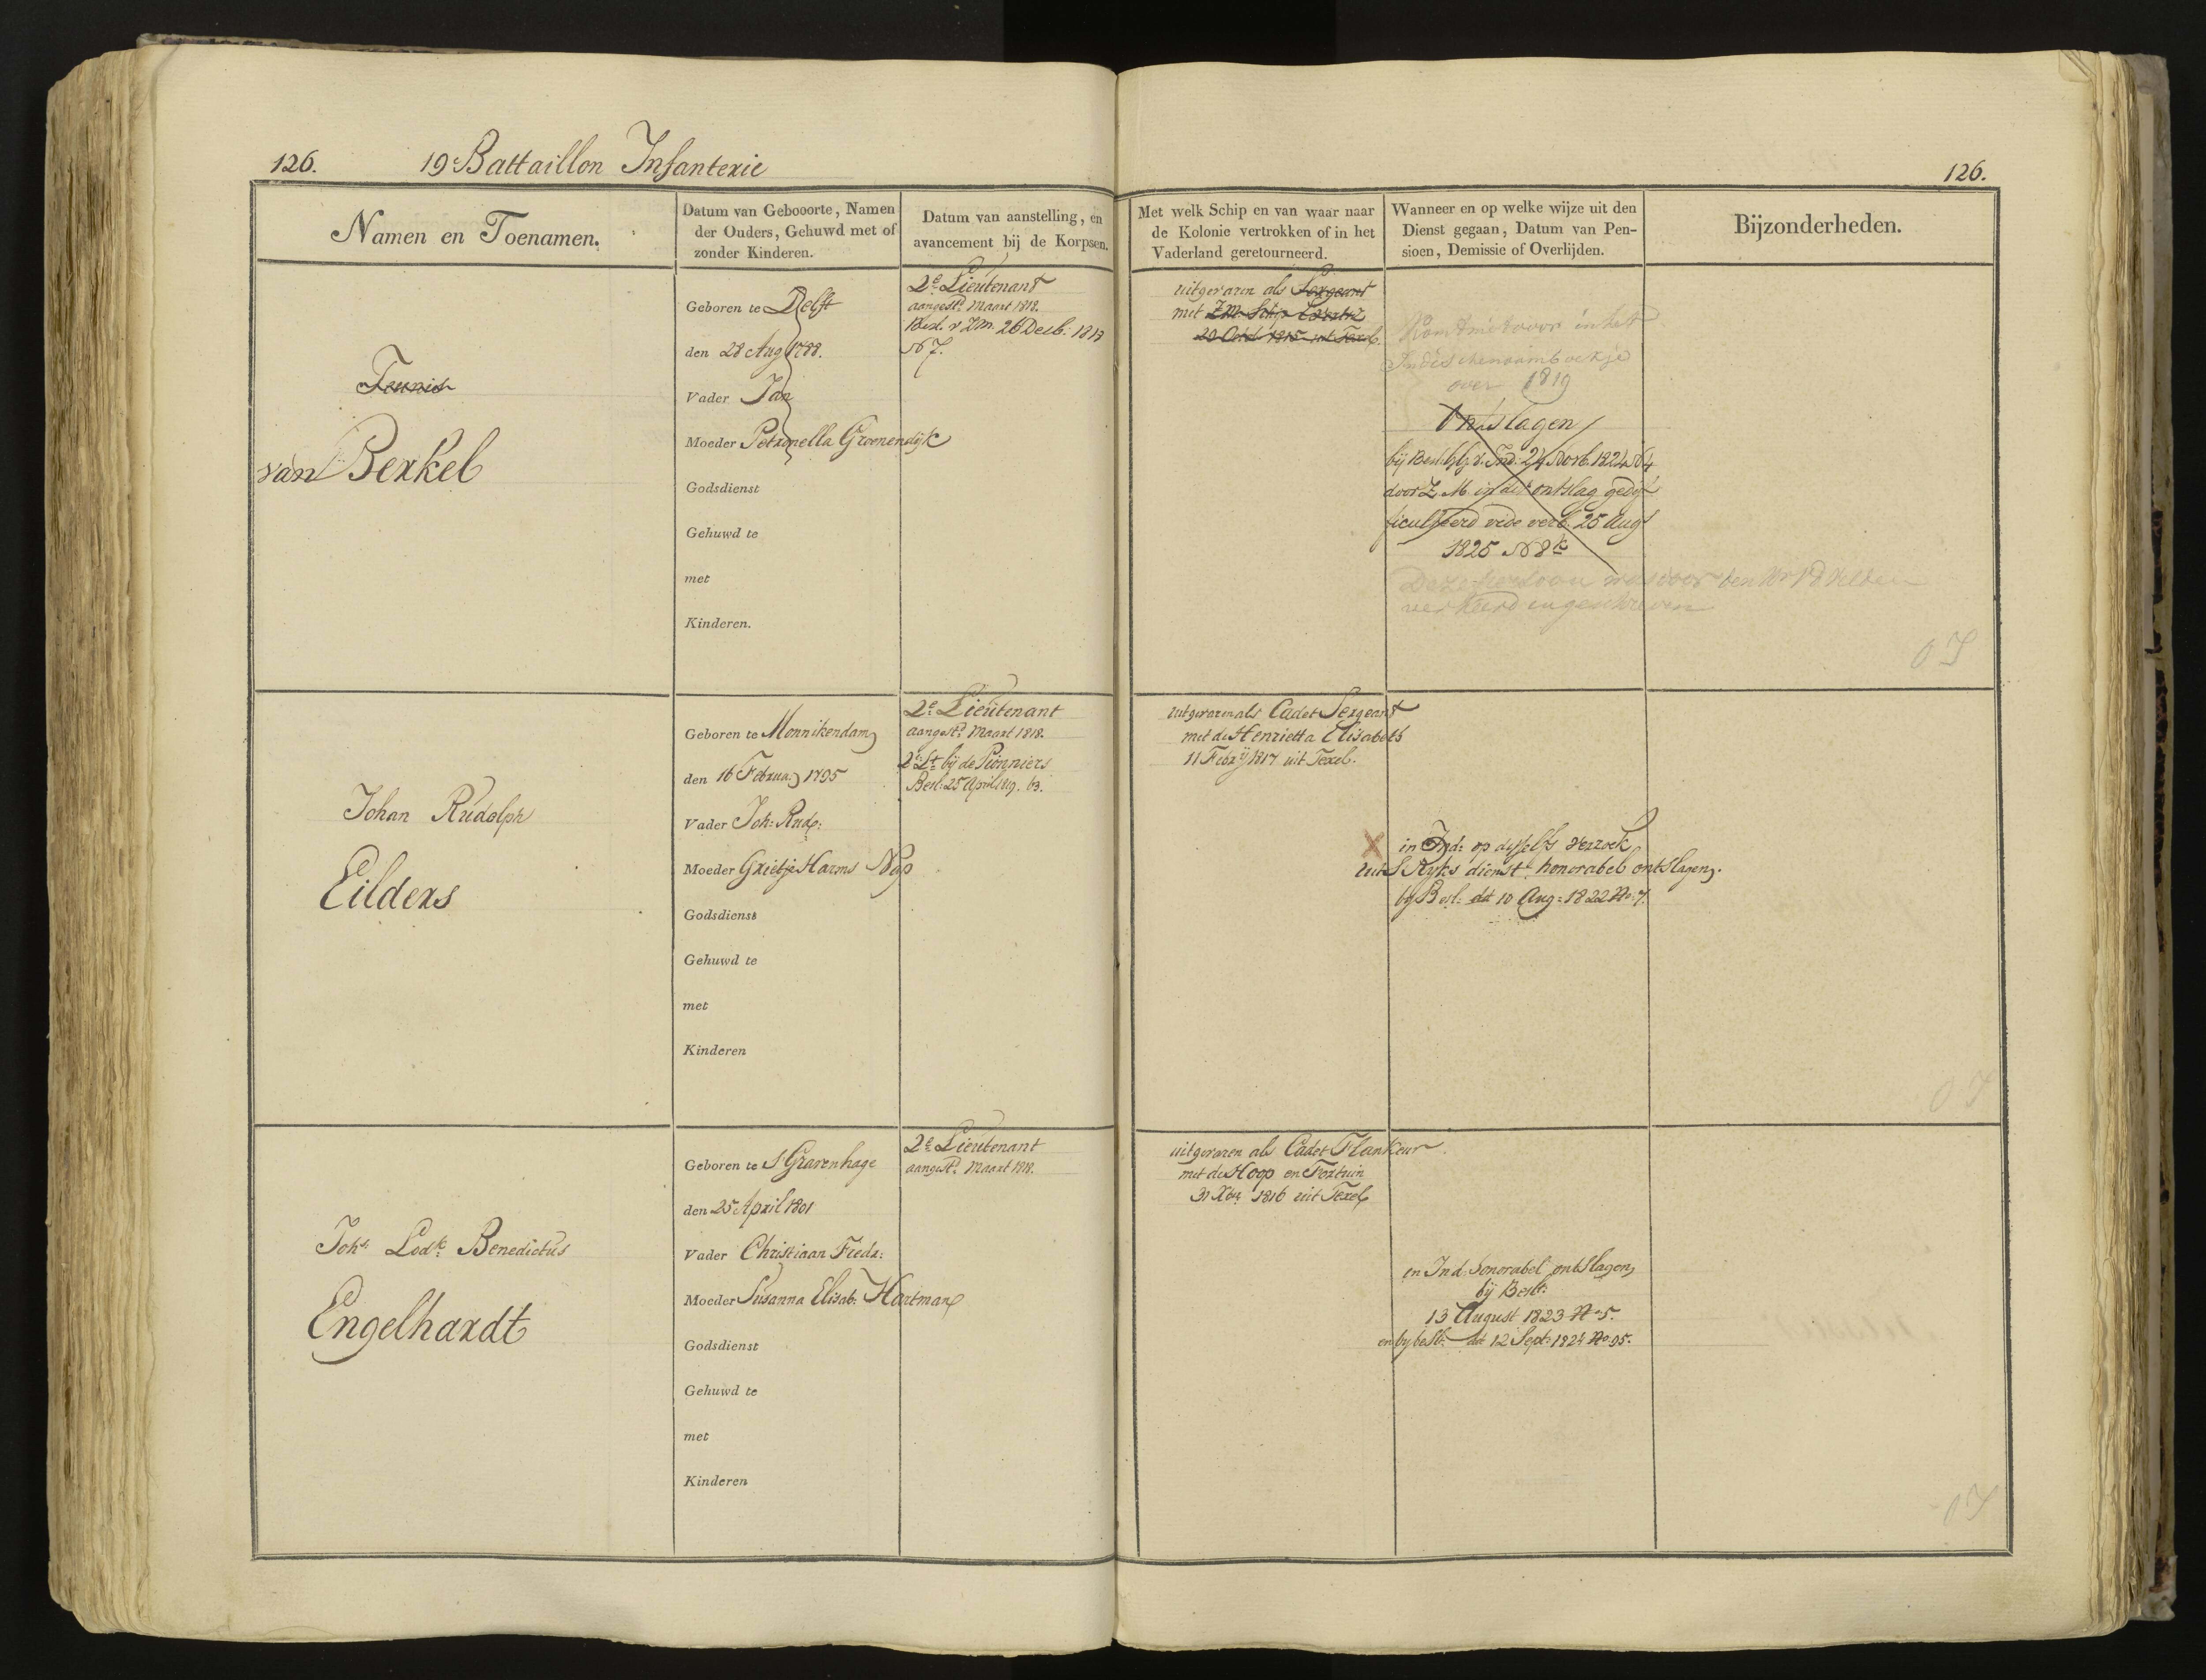 126.
19e Battaillon Infanterie
126.
Namen en Toenamen.
Datum van Gebooorte, Namen
der Ouders, Gehuwd met of
zonder Kinderen.
Datum van aanstelling, en
avancement bij de Korpsen.
Met welk Schip en van waar naar
de Kolonie vertrokken of in het
Vaderland geretourneerd.
Wanneer en op welke wijze uit den
Dienst gegaan, Datum van Pen-
sioen, Demissie of Overlijden.
Bijzonderheden.
Teunis
van Berkel
Geboren te Delft
den 28 Aug 1788.
Vader Jan
Moeder Petronella Groenendijk
Godsdienst
Gehuwd te
met
Kinderen.
2e Lieutenant
aangestd. Maart 1818.
Besl. v ZM. 26 Decb: 1817
No 7.
uitgevaren als Sergeant
met Z.M. Schip
1815 uit Texel.
Komt niet voor in het
Indische naamboekje
over 1819
Ontslagen
bij Besl. GG v. Ind: 24 Novb. 1824 No 4
door Z. M. in dit ontslag gedif-
ficulteerd vide verb. 25 Augt
1825 No 8 k
Deze persoon was door den Hr
verkeerd ingeschreven
OI
Johan Rudolph
Eilders
Geboren te Monnikendam
den 16 Februa: 1795
Vader Joh: Rud:
Moeder Grietje Harms Nap
Godsdienst
Gehuwd te
met
Kinderen
2e Lieutenant
aangestd. Maart 1818.
2e Lt bij de Pionniers
Besl: 25 April 1819. 63.
uitgevaren als Cadet Sergeant
met de Henrietta Elisabeth
11 Febrij 1817 uit Texel.
X in Ind: op desselfs verzoek
uit S Ryks dienst honorabel ontslagen.
by Besl: dd 10 Aug: 1822 No: 7.
OI
Johs. Lodk. Benedictus
Engelhardt
Geboren te S Gravenhage
den 25 April 1801
Vader Christiaan Fredr:
Moeder Susanna Elisab: Hartman
Godsdienst
Gehuwd te
met
Kinderen
2e Lieutenant
aangestd. Maart 1818.
uitgevaren als Cadet Flankeur
met de Hoop en Fortuin
31 Xber 1816 uit Texel
in Ind. honorabel ontslagen
bij Beslt:
13 August 1823 No 5.
en by beslt: dd 12 Sept: 1824 No 95.
OI